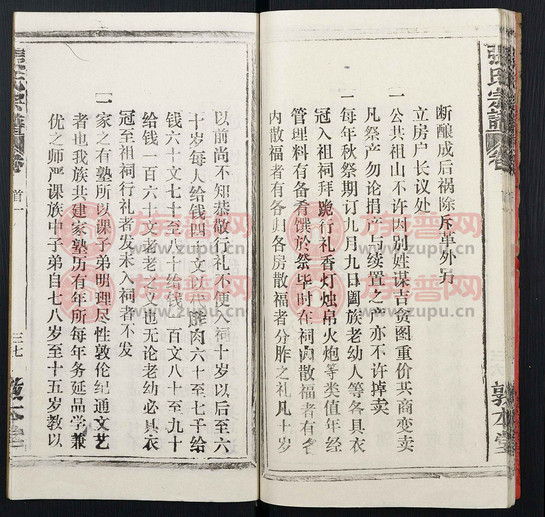 張氏宗譜
卷
敦本堂
断酿成后祸除斥革外另
立房户长议处
一公共祖山不许内别姓谋吉贪图重价共商变卖
凡祭产勿论捐产续置之产亦不许掉卖
一每年秋祭期订九月九日阖族老幼人等各具衣
冠入祖祠拜跪行礼香灯烛帛火炮等类值年经
管理料有备肴馔於祭毕时在祠散福者有各
内散福者有各归各房散福者分胙之礼凡十岁
以前尚不知恭敬行礼不便入祠十岁以后至六
十岁每人给钱四文以代胙肉六十至七十给
钱六十文七十至八十给钱百文八十至九十
给钱一百六十文老老之义也无论老幼必具衣
冠至祖祠行礼者发未入祠者不发
一家之有塾所以课子弟明理尽性敦伦纪通文艺
者也我族共建家塾历有年所每年务延品学兼
优之师严课族中子弟自七八岁至十五岁教以
張氏宗譜
卷
首一
三七
敦本堂
族谱网
www.zupu.cn
族谱网
www.zupu.cn